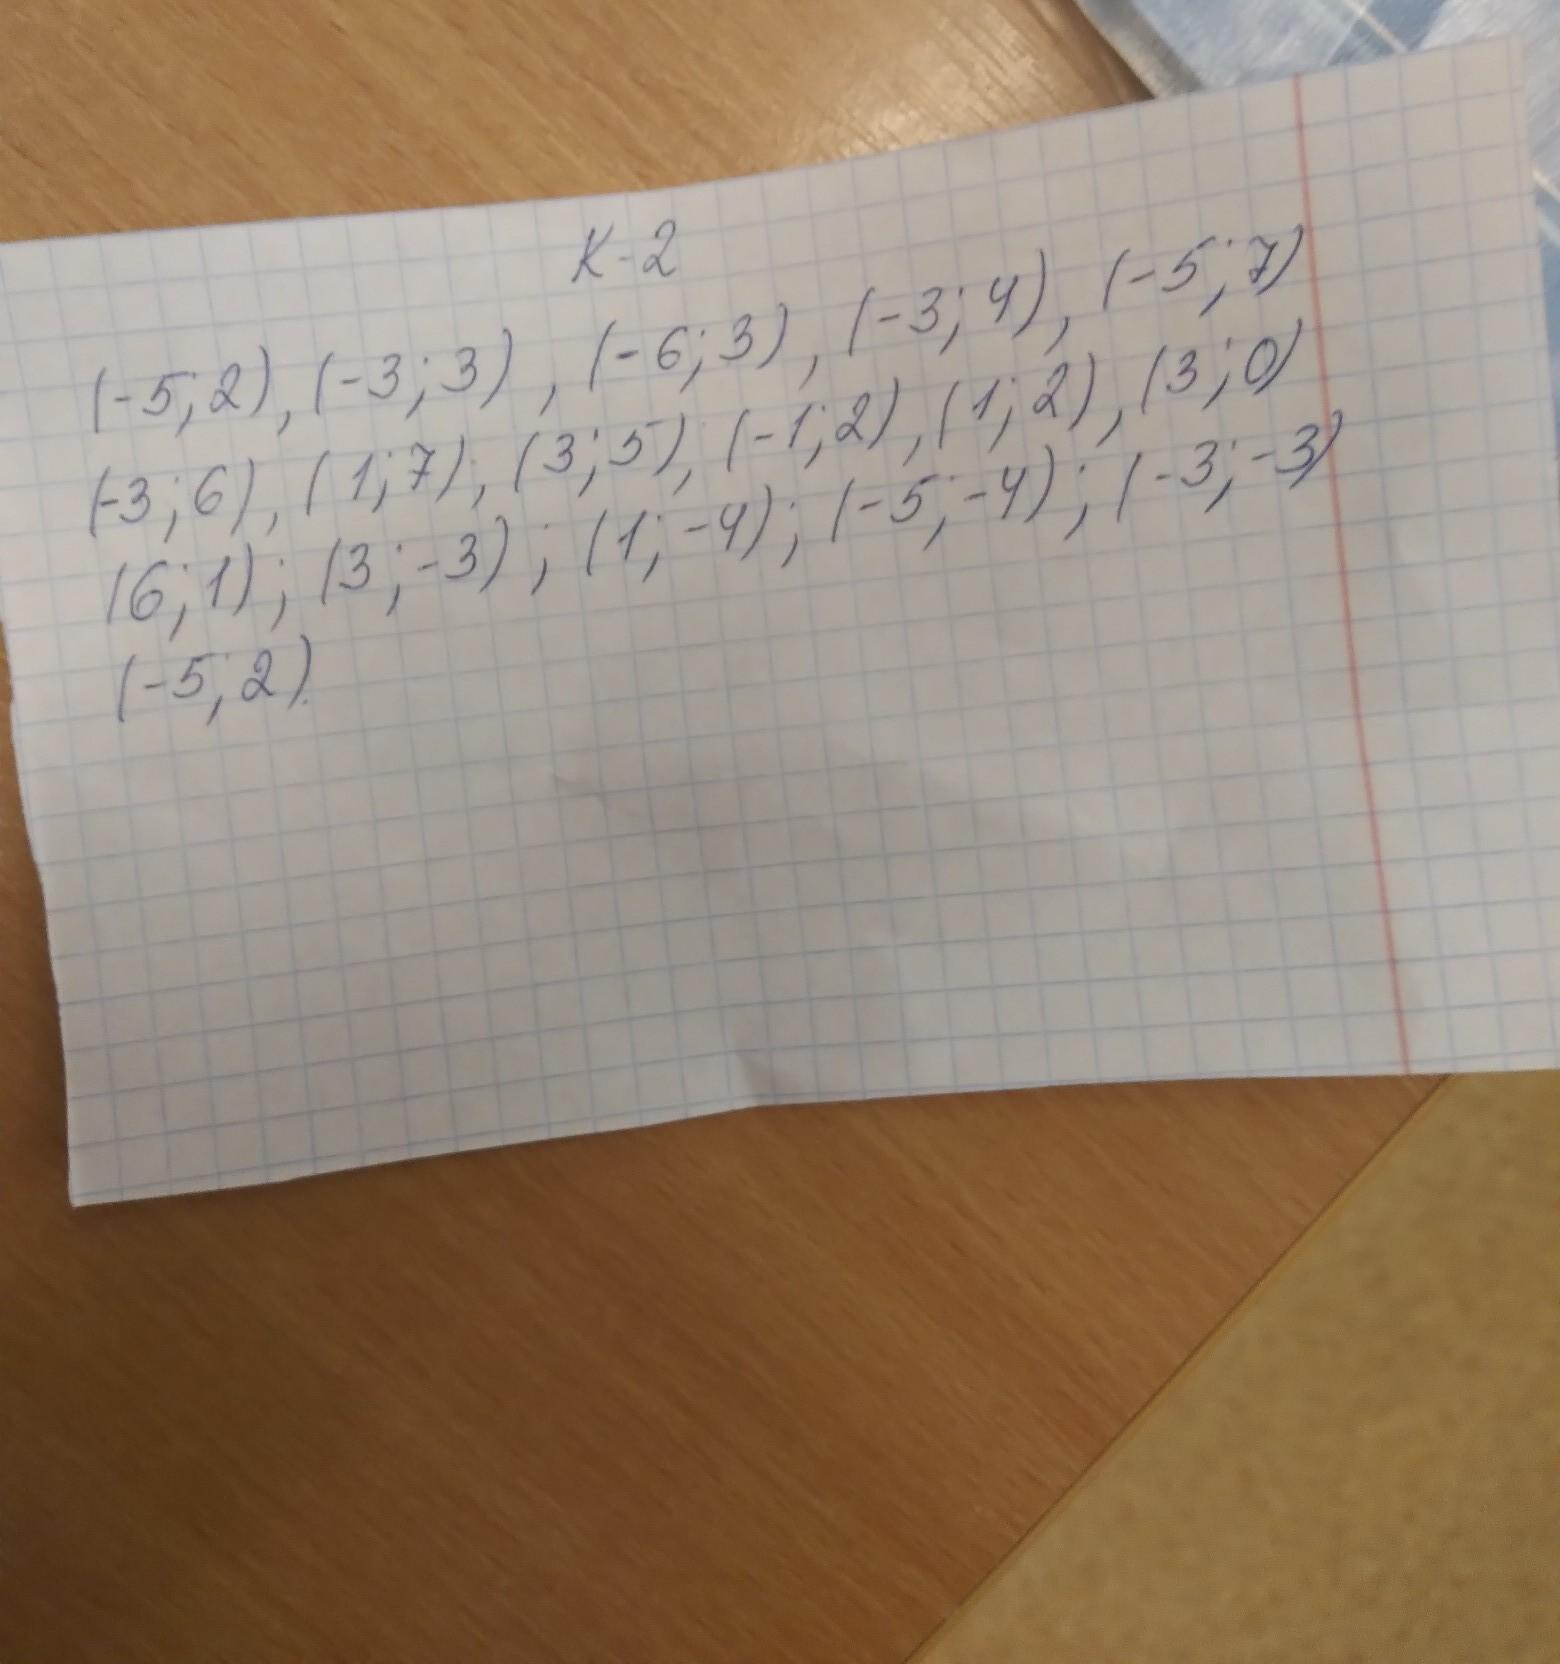 К-2
(-5;2), (-3;3), (-6;3), (-3;4), (-5;7)
(-3;6), (1;7), (3;5), (-1;2), (1;2), (3;0)
(6;1); (3;-3); (1;-4); (-5;-4); (-3;-3)
(-5;2).